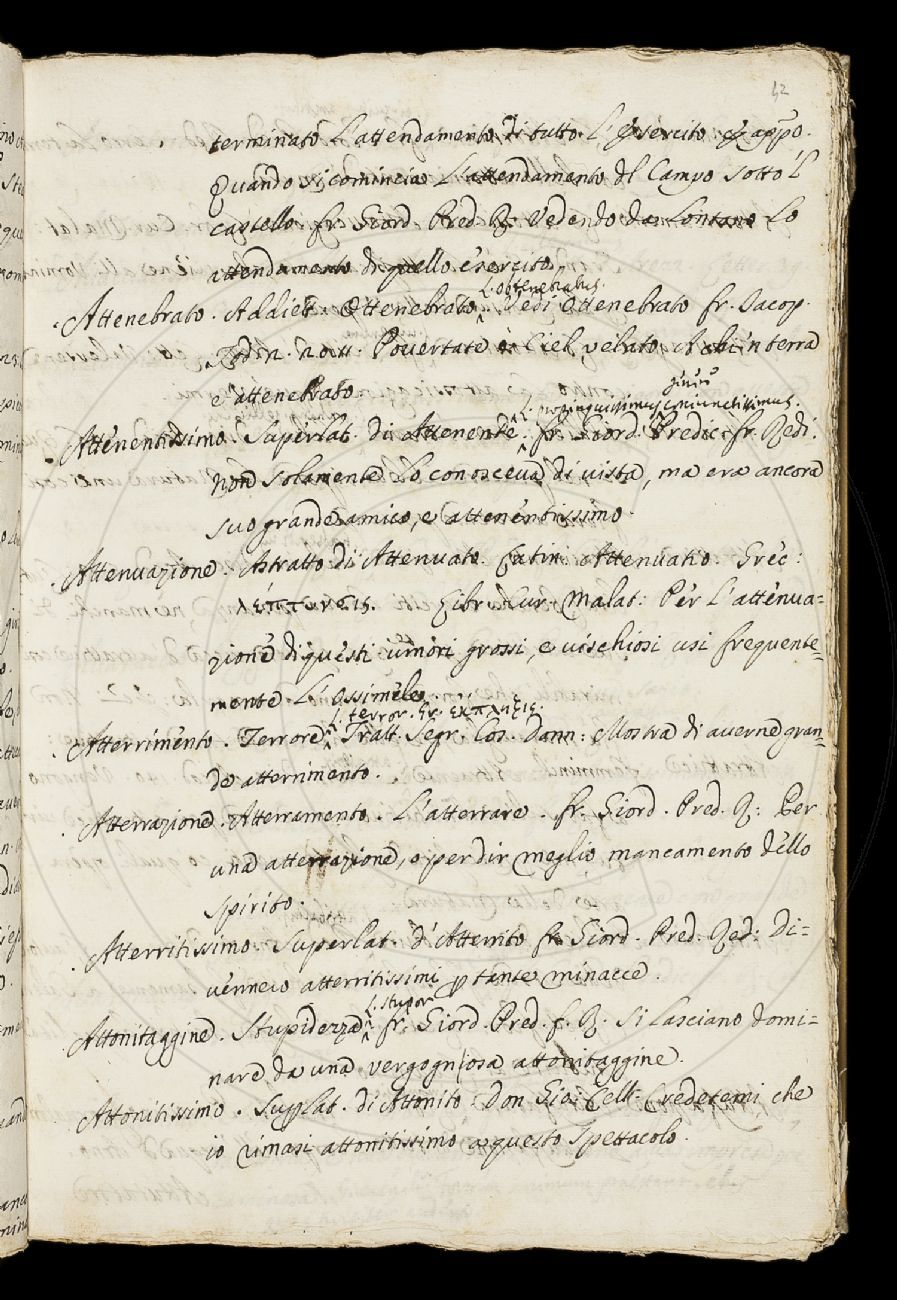 42
terminato l'attendamento di tutto l'esercito. E appo.
Quando si cominciò l'attendamento del Campo sotto 'l
castello. fr. Giord. Pred. R. Vedendo da lontano lo
attendamento di quello esercito.
L. obtenebratus.
Attenebrato. Addiet. Ottenebrato. Vedi Ottenebrato fr. Jacop.
Tod. 2. 20. 11. Povertate è Ciel velato A chi 'n terra
è attenebrato.
L. propinquissimus, coniunctissimus.
Attenentissimo. Superlat. di Attenente. fr. Giord. Predic. fr. Redi.
Non solamente lo conosceva di vista, ma era ancora
suo grande amico, e attenentissimo.
Attenuazione. Astratto di Attenuato. Latin. Attenuatio. Grec:
λέπτυνσις. Libr. Cur. Malat: Per l'attenua=
zione di questi umori grossi, e vischiosi usi frequente=
mente l'Ossimele.
L. terror. Gr. ἔκπληξις.
Atterrimento. Terrore. Tratt. Segr. Cos. Donn: Mostra di averne gran=
de atterrimento.
Atterrazione. Atterramento. L'atterrare. fr. Giord. Pred. R: Per
una atterrazione, o per dir meglio mancamento dello
spirito.
Atterritissimo. Superlat. d'Atterrito fr. Giord. Pred. Red: Di=
vennero atterritissimi p tante minacce.
L. stupor
Attonitaggine. Stupidezza. fr. Giord. Pred. f. R. Si lasciano domi=
nare da una vergogniosa attonitaggine.
Attonitissimo. Suplat. di Attonito. Don Gio: Cell. Credetemi che
io rimasi attonitissimo a questo spettacolo.